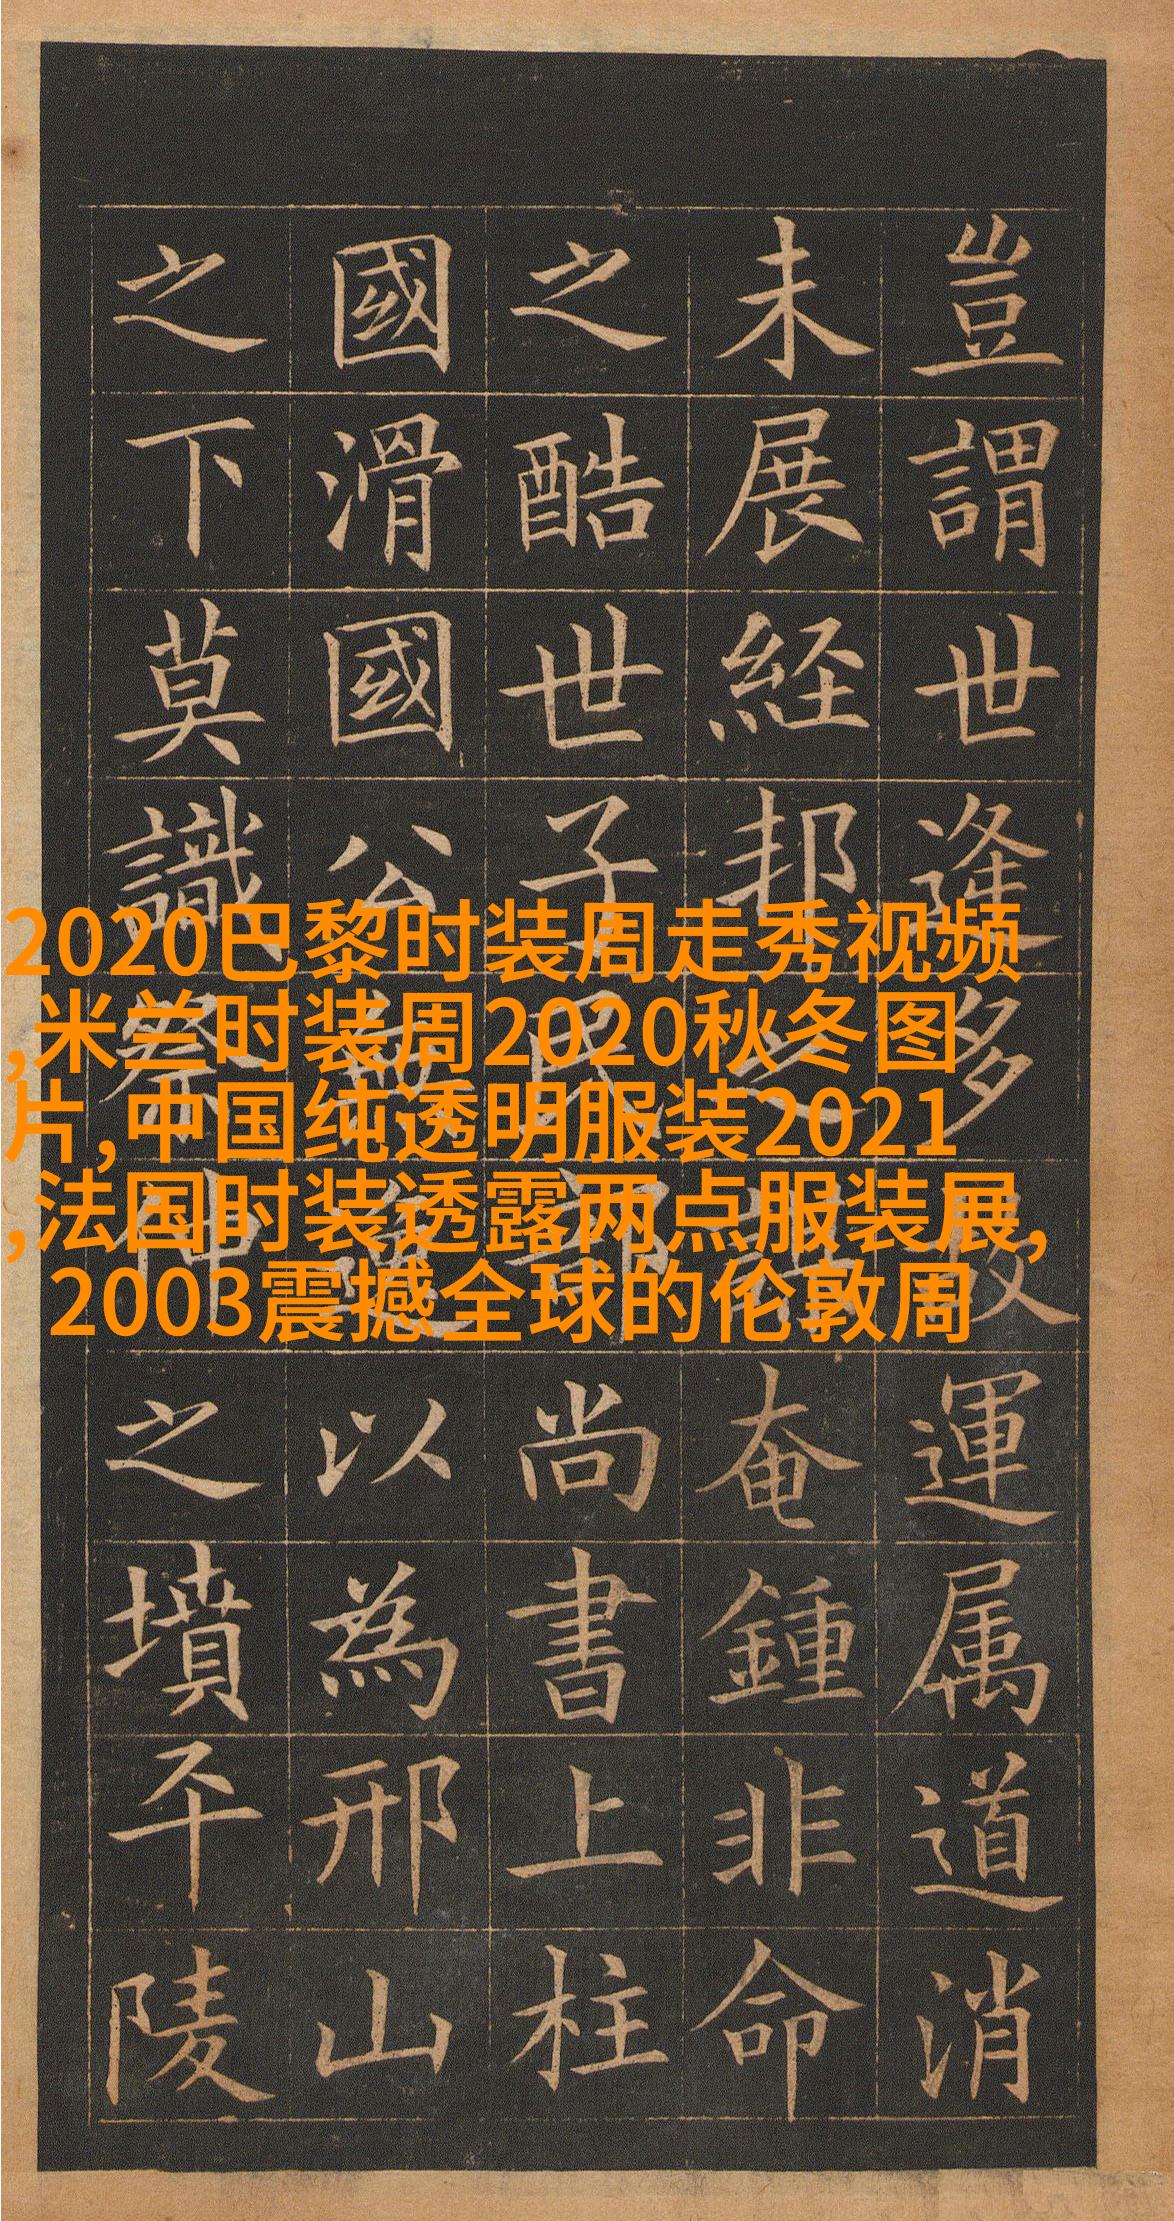 豈謂世逢多故運属道消
未展経邦之奄鍾非命
之酷世子民部尚書上柱
國滑國公無逸以為邢山
之下莫識祭仲之墳平陵
2020巴黎时装周走秀视频
,米兰时装周2020秋冬图
片,中国纯透明服装2021
,法国时装透露两点服装展,
2003震撼全球的伦敦周